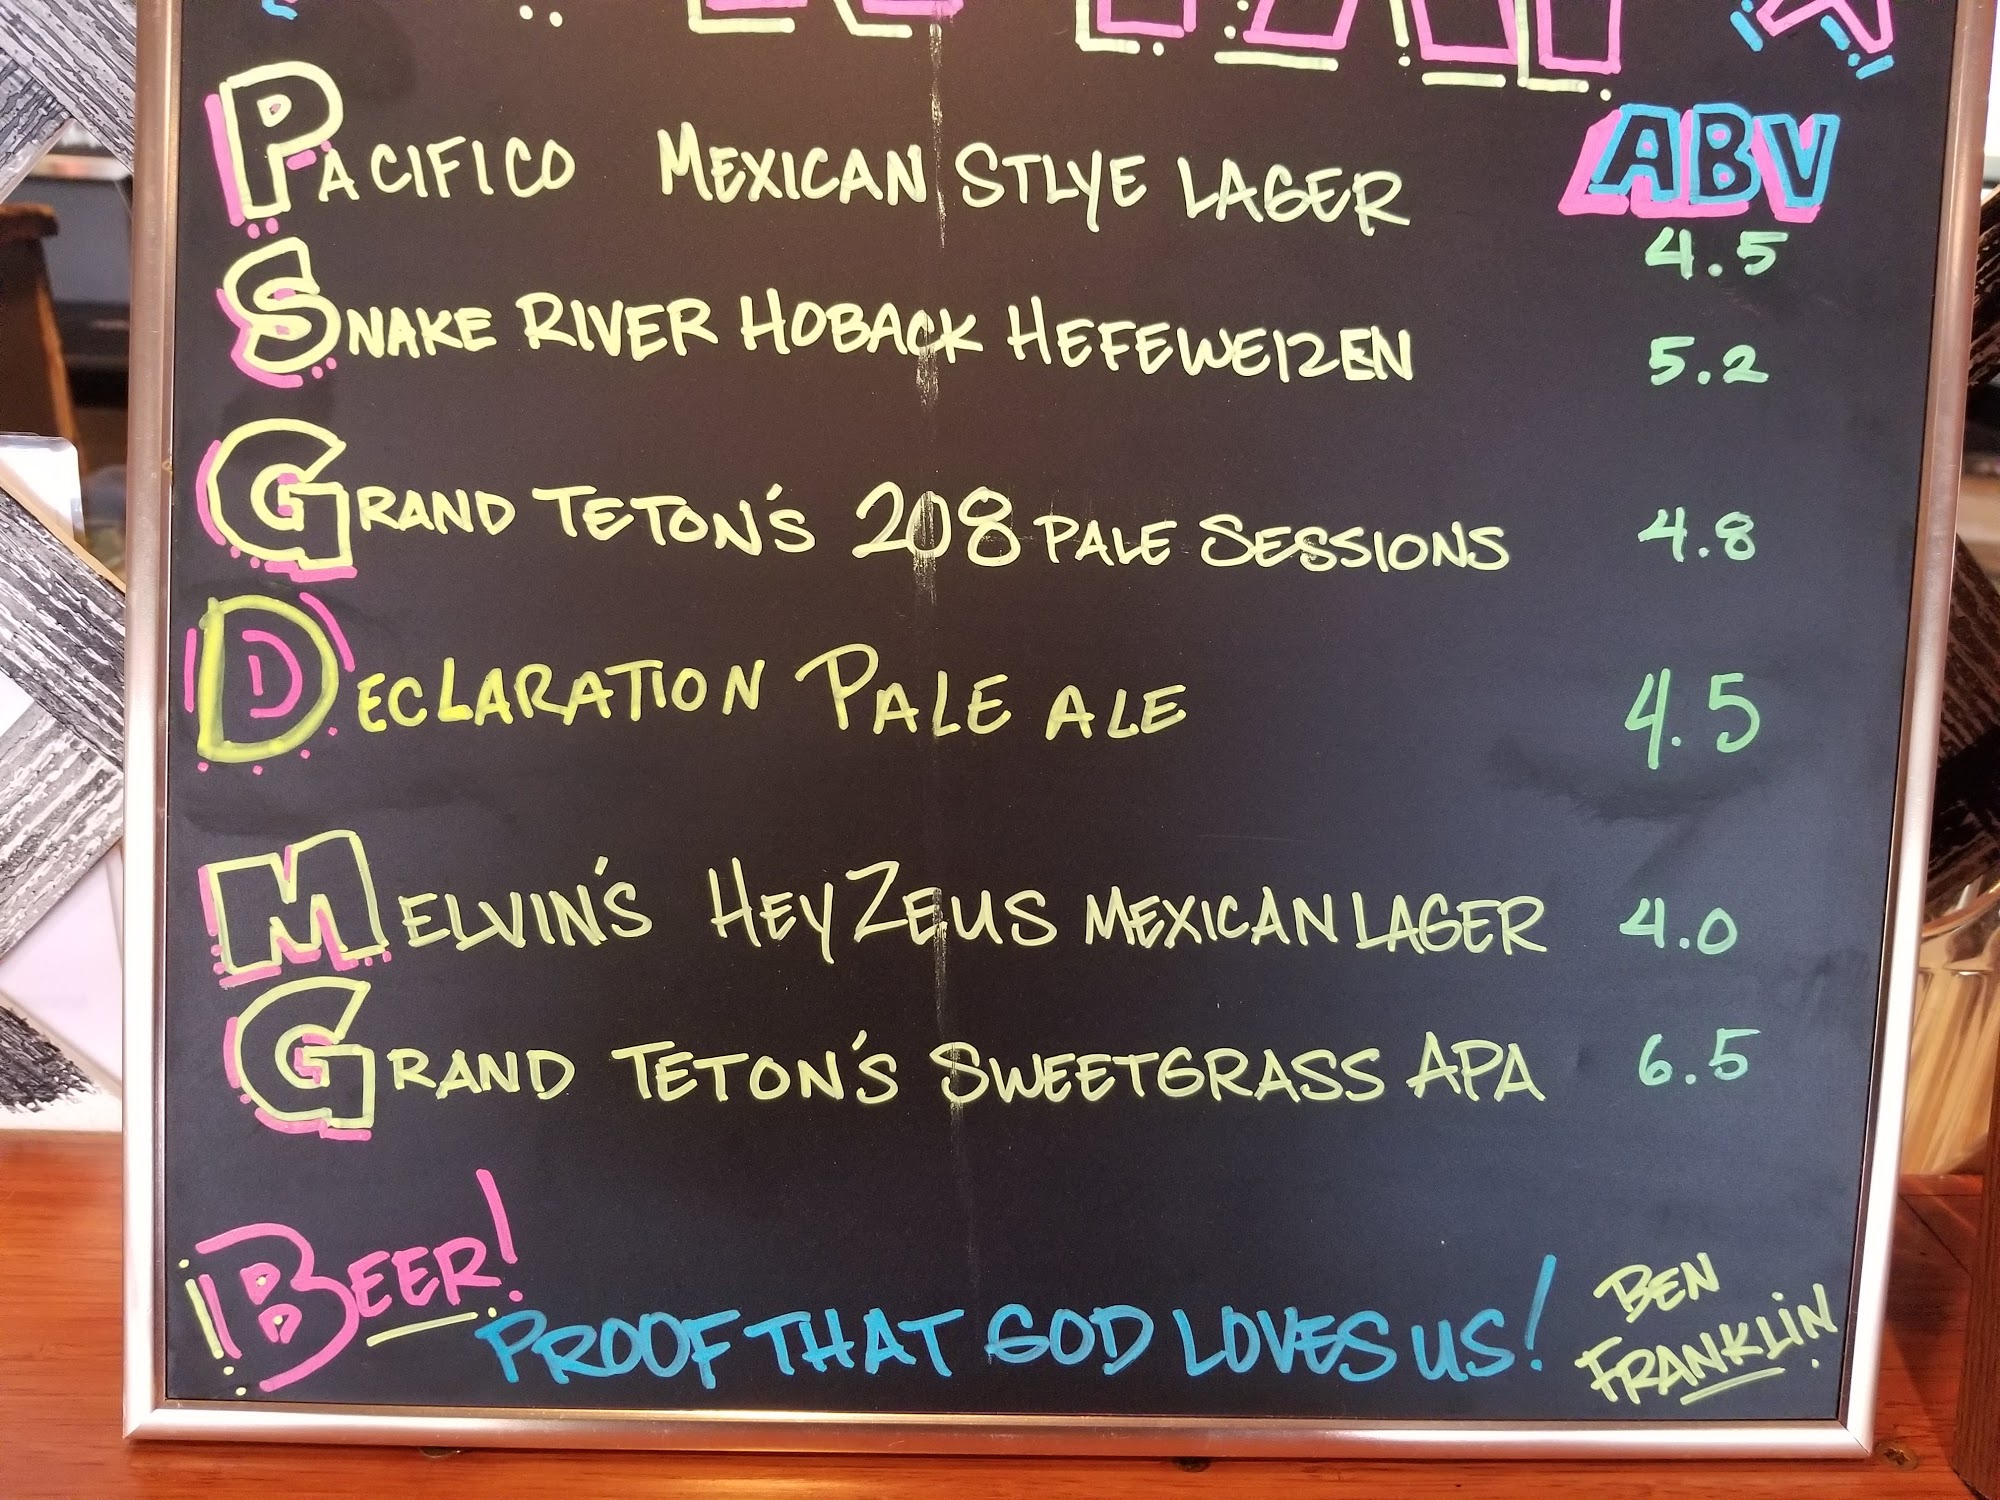 PACIFICO MEXICAN STLYE LAGER ABV
4.5
SNAKE RIVER HOBACK HEFEWEIZEN 5.2
GRAND TETON'S 208 PALE SESSIONS 4.8
DECLARATION PALE ALE 4.5
MELVIN'S HEY ZEUS MEXICAN LAGER 4.0
GRAND TETON'S SWEETGRASS APA 6.5
BEER!
PROOF THAT GOD LOVES US!
BEN
FRANKLIN